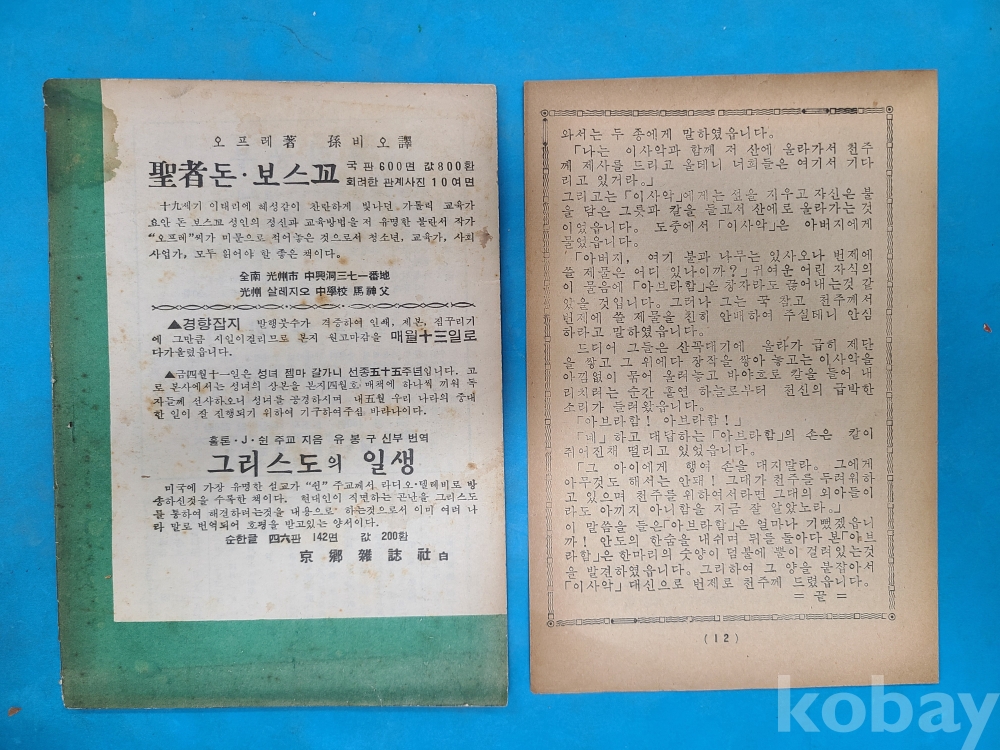 오프레著 孫비오譯
聖者돈·보스꼬 국판600면 값800환
회려한 관계사진 10여면
十九세기 이태리에 혜성같이 찬란하게 빛나던 가톨릭 교육가
요안 돈 보스꼬 성인의 정신과 교육방법을 저 유명한 불란서 작가
“오프레”씨가 미문으로 적어놓은 것으로서 청소년, 교육가, 사회
사업가, 모두 읽어야 할 좋은 책이다.
全南 光州市 中興洞三七一番地
光州 살레지오 中學校 馬神父
▲경향잡지 발행붓수가 격증하여 인쇄, 제본, 짐꾸리기
에 그만큼 시일이걸리므로 본지 원고마감을 매월十三일로
다가올렸읍니다.
▲금四월十一일은 성녀 젬마 갈가니 선종五十五주년입니다. 고
로 본사에서는 성녀의 상본을 본지四월호 매책에 하나씩 끼워 독
자들께 선사하오니 성녀를 공경하시며 내五월 우리 나라의 중대
한 일이 잘 진행되기 위하여 기구하여주심 바라나이다.
훌톤·J·쉰 주교 지음 유봉구 신부 번역
그리스도의 일생
미국에 가장 유명한 설교가 “쉰” 주교께서 라디오·텔레비로 방
송하신것을 수록한 책이다. 현대인이 직면하는 곤난을 그리스도
를 통하여 해결하려는것을 내용으로 하는것으로서 이미 여러 나
라 말로 번역되어 호평을 받고있는 양서이다.
순한글 四六판 142면 값 200환
京鄕雜誌社 白
와서는 두 종에게 말하였읍니다.
「나는 이사악과 함께 저 산에 올라가서 천주
께 제사를 드리고 올테니 너희들은 여기서 기다
리고 있거라.」
그리고는 「이사악」에게는 섶을 지우고 자신은 불
을 담은 그릇과 칼을 들고서 산에로 올라가는것
이었읍니다. 도중에서 「이사악」은 아버지에게
물었읍니다.
「아버지, 여기 불과 나무는 있사오나 번제에
쓸 제물은 어디 있나이까?」 귀여운 어린 자식의
이 물음에 「아브라함」은 창자라도 끊어내는것 같
았을 것입니다. 그러나 그는 꾹 참고 천주께서
번제에 쓸 제물을 친히 안배하여 주실테니 안심
하라고 말하였읍니다.
드디어 그들은 산꼭대기에 올라가 급히 제단
을 쌓고 그 위에다 장작을 쌓아 놓고는 이사악을
아낌없이 묶어 올려놓고 바야흐로 칼을 들어 내
리치려는 순간 홀연 하늘로부터 천신의 급박한
소리가 들려왔읍니다.
「아브라함! 아브라함!」
「네」하고 대답하는 「아브라함」의 손은 칼이
쥐어진채 떨리고 있었읍니다.
「그 아이에게 행여 손을 대지말라. 그에게
아무것도 해서는 안돼! 그대가 천주를 두려워하
고 있으며 천주를 위하여서라면 그대의 외아들이
라도 아끼지 아니함을 지금 잘 알았노라.」
이 말씀을 들은「아브라함」은 얼마나 기뻤겠읍니
까! 안도의 한숨을 내쉬며 뒤를 돌아다 본「아브
라함」은 한마리의 숫양이 덤불에 뿔이 걸려있는것
을 발견하였읍니다. 그리하여 그 양을 붙잡아서
「이사악」대신으로 번제로 천주께 드렸읍니다.
= 끝 =
(12)
kobay